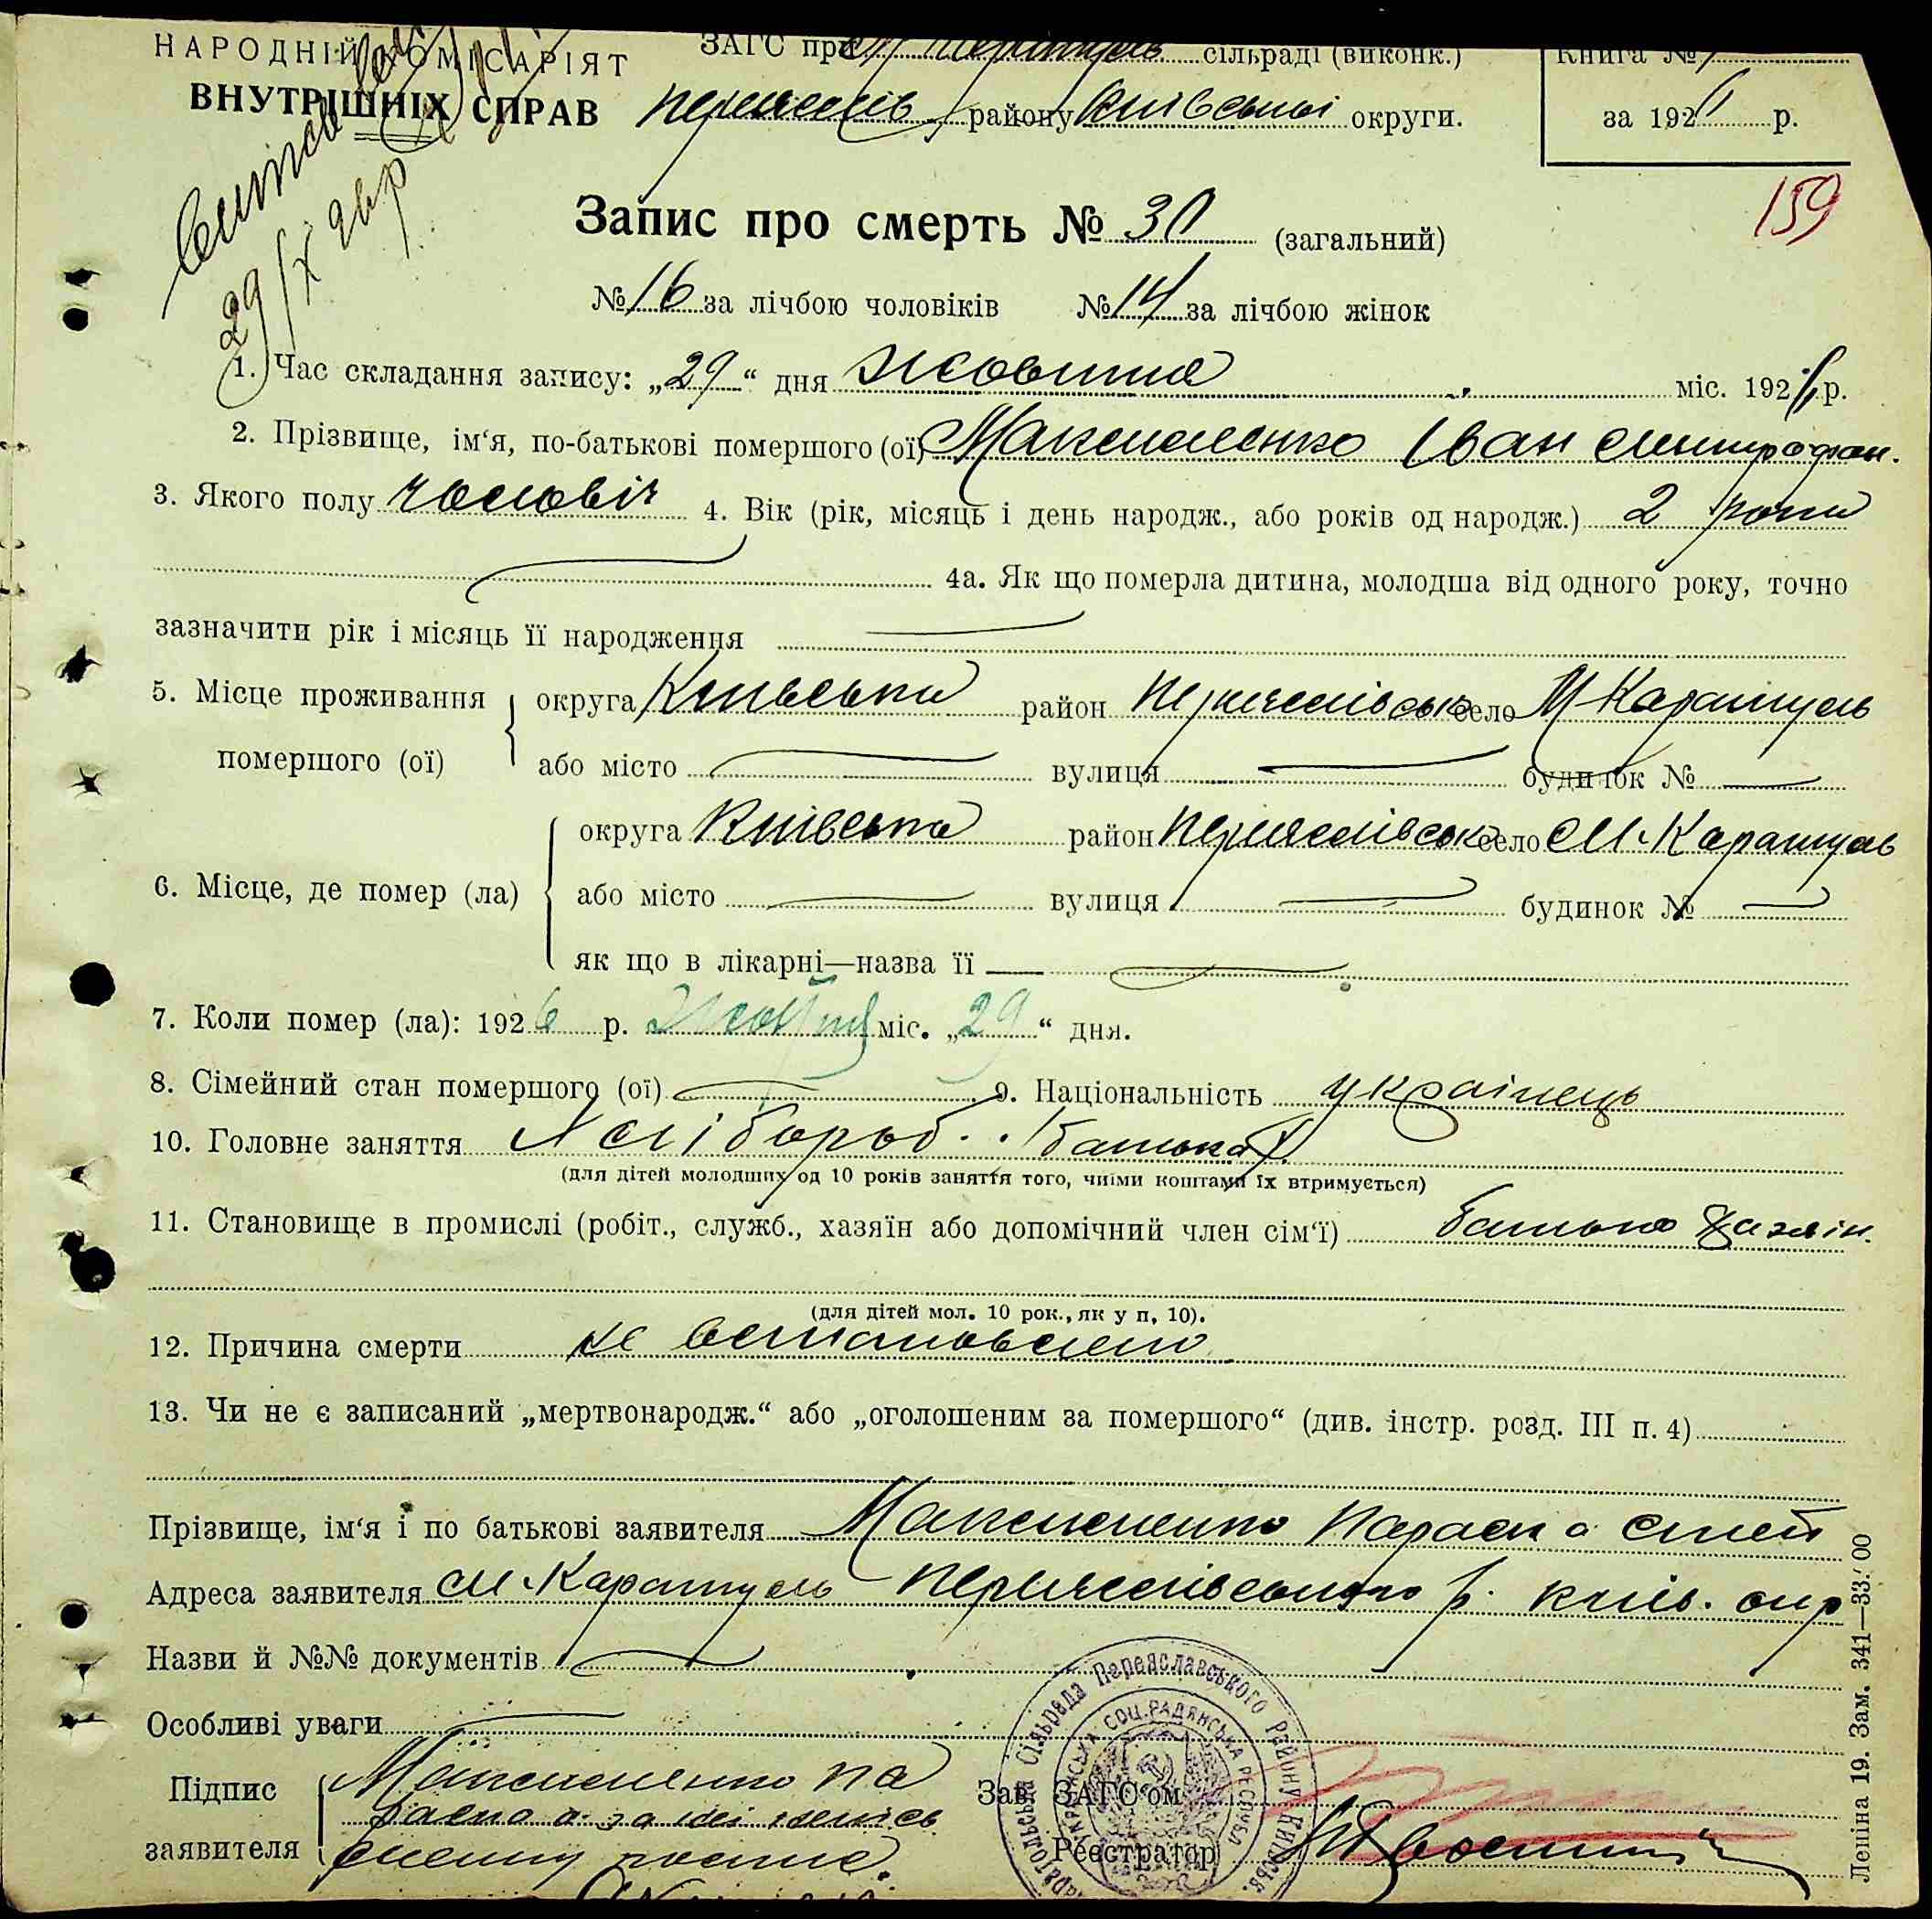 НАРОДНІЙ КОМІСАРІЯТ
ВНУТРІШНІХ СПРАВ
ЗАГС при сільраді (виконк.)
району Київської округи.
Книга №
за 1926 р.
159
29/X 26 р
Запис про смерть № 30 (загальний)
№ 16 за лічбою чоловіків № 14 за лічбою жінок
1. Час складання запису: „29“ дня Жовтня міс. 1926 р.
2. Прізвище, ім‘я, по-батькові помершого (ої) Максименко Іван Митрофан.
3. Якого полу чоловіч 4. Вік (рік, місяць і день народж., або років од народж.) 2 роки
4а. Як що померла дитина, молодша від одного року, точно
зазначити рік і місяць її народження
5. Місце проживання помершого (ої) округа Київська район село М-Каратуль
або місто вулиця будинок №
6. Місце, де помер (ла) округа Київська район село М-Каратуль
або місто вулиця будинок №
як що в лікарні—назва її
7. Коли помер (ла): 1926 р. Жовтня міс. „29“ дня.
8. Сімейний стан помершого (ої) 9. Національність українець
10. Головне заняття Хлібороб. батько
(для дітей молодших од 10 років заняття того, чиїми коштами їх втримується)
11. Становище в промислі (робіт., служб., хазяїн або допомічний член сім‘ї) батько хазяін.
(для дітей мол. 10 рок., як у п, 10).
12. Причина смерти не встановлено
13. Чи не є записаний „мертвонародж.“ або „оголошеним за помершого“ (див. інстр. розд. III п. 4)
Прізвище, ім‘я і по батькові заявителя Максименко Параска
Адреса заявителя М-Каратуль р. Київ. окр
Назви й №№ документів
Особливі уваги
Підпис заявителя Максименко Па
раска а за неі
Зав. ЗАГС‘ом
Реєстратор
сільрада Переяславського Району Київськ.
УКРАЇНСЬКА СОЦ. РАДЯНСЬКА РЕСПУБЛ
Леніна 19. Зам. 341—33.